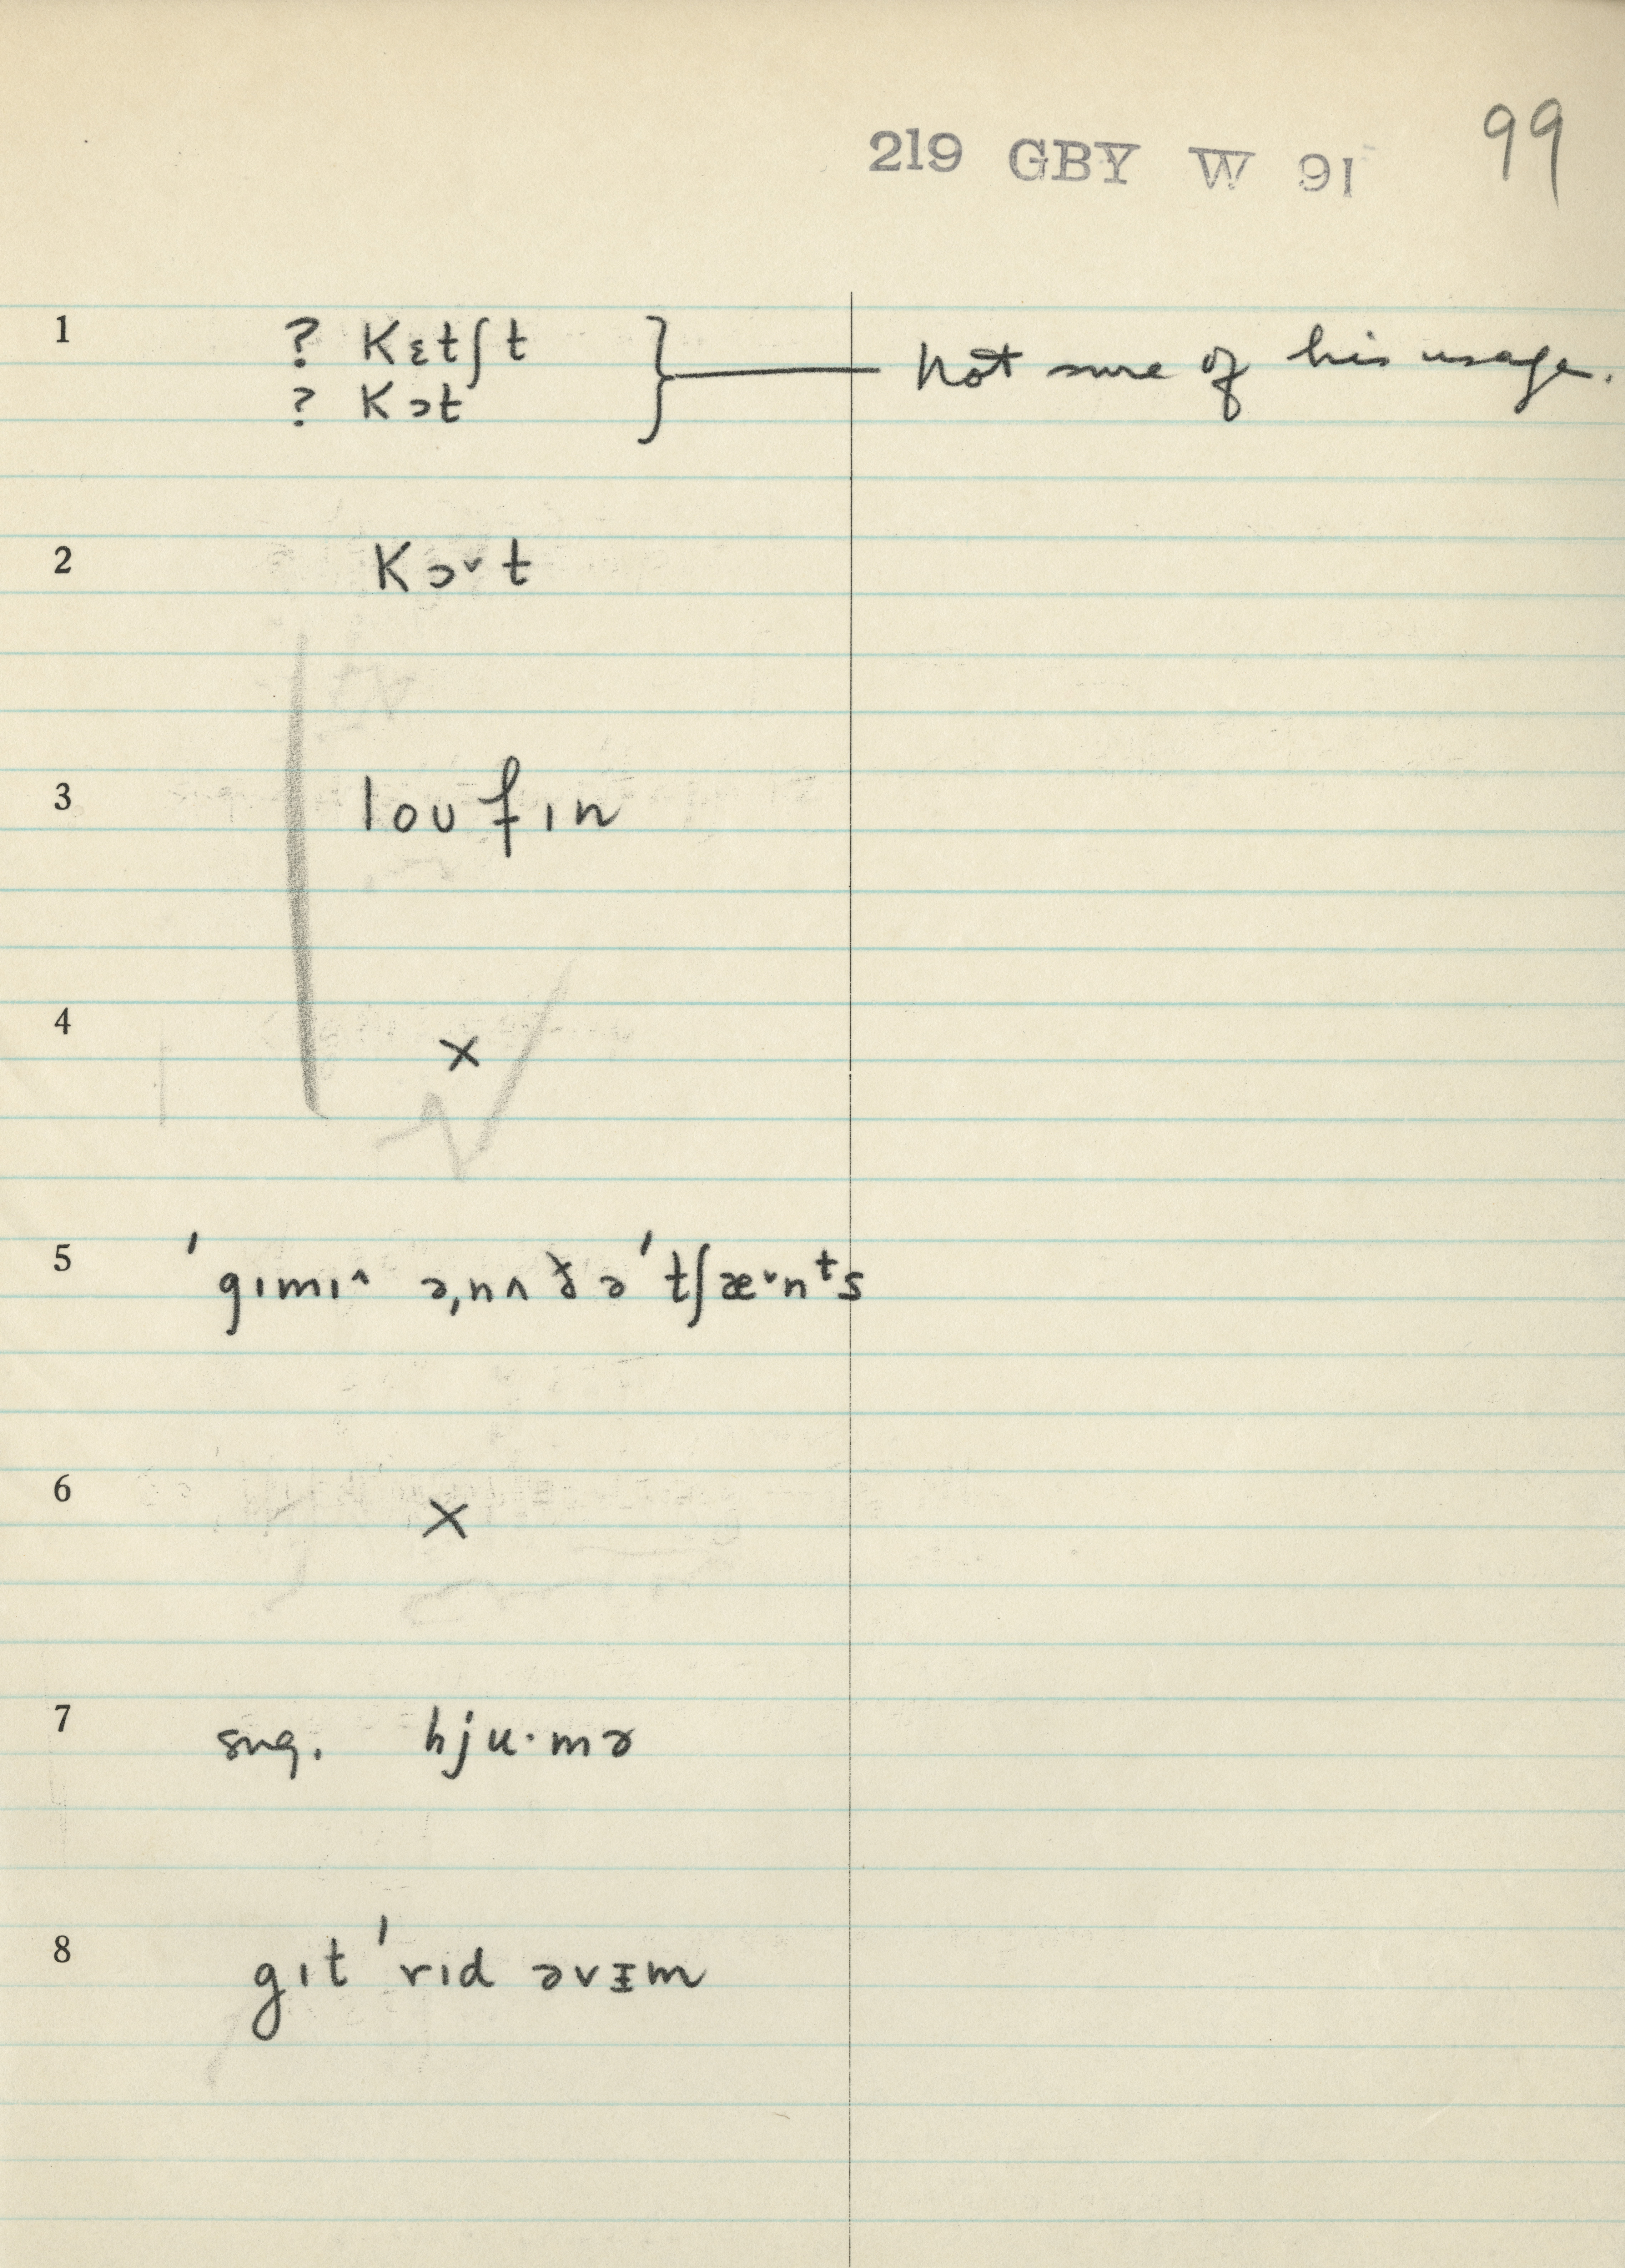 219 GBY W 91 99
1 ? kɛtʃt } Not sure of his usage.
? kɔt
2 kɔ˅t
3 loʊfɪn
4 ×
5 ˈgɪmɪ˄ əˌnʌðəˈtʃæ˅nᵗs
6 ×
7 sug. hju·mɚ
8 gɪt ˈrɪd əvɪ̵m